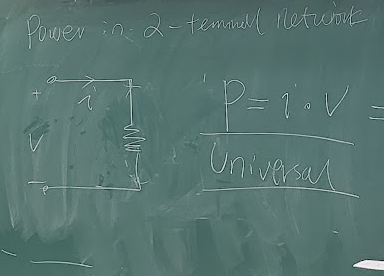 Power in 2-terminal Network
+ i
V
-
P = i · V =
Universal